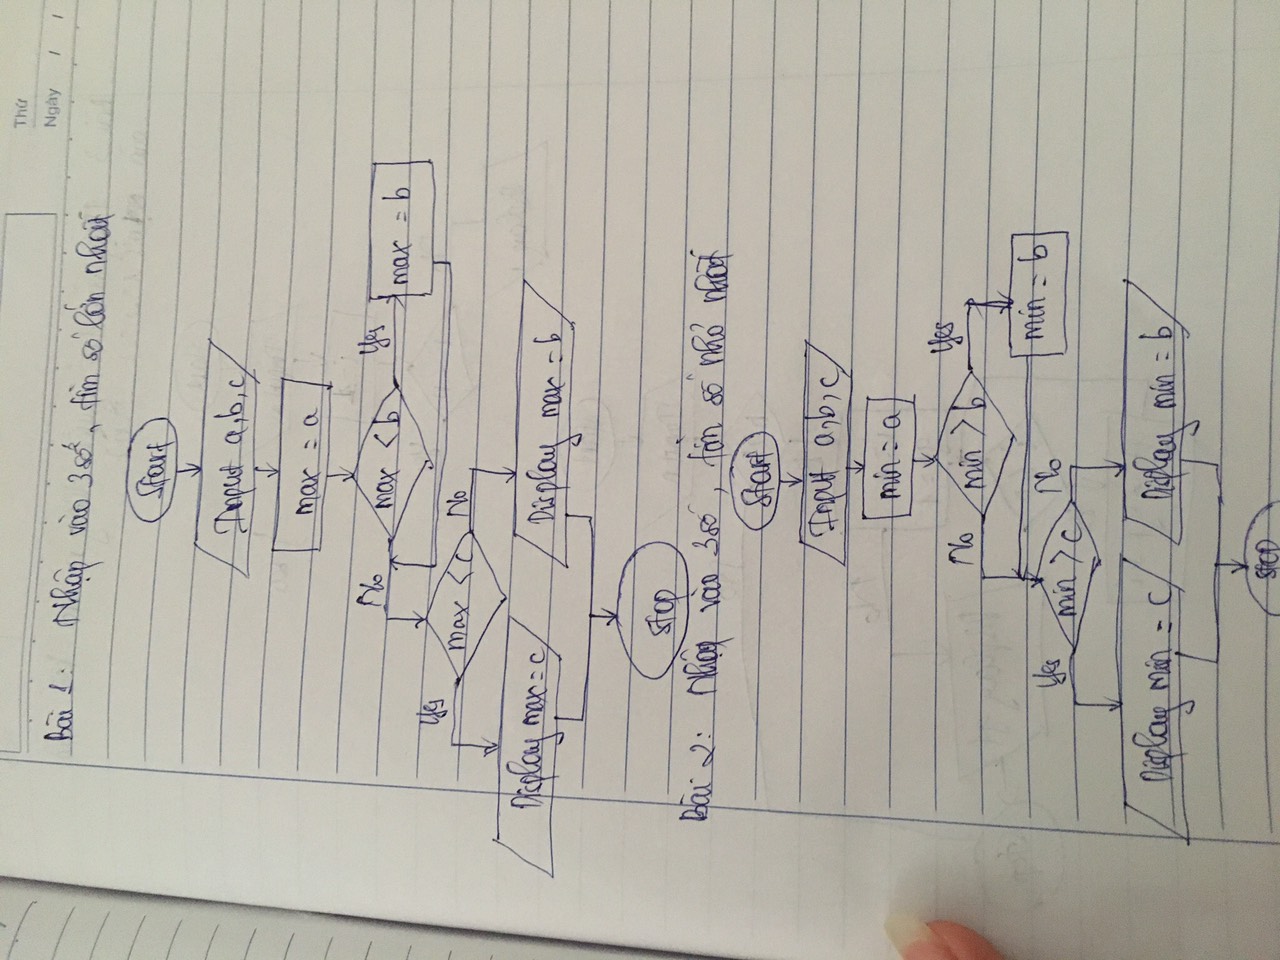 Thứ
Ngày / /
Bài 1: Nhập vào 3 số, tìm số lớn nhất
Start
Input a,b,c
max = a
max < b
Yes
max = b
No
max < c
No
Yes
Display max = b
Display max = c
Stop
Bài 2: Nhập vào 3 số, tìm số nhỏ nhất
Start
Input a,b,c
min = a
min > b
Yes
No
min = b
min > c
No
Yes
Display min = b
Display min = c
Stop